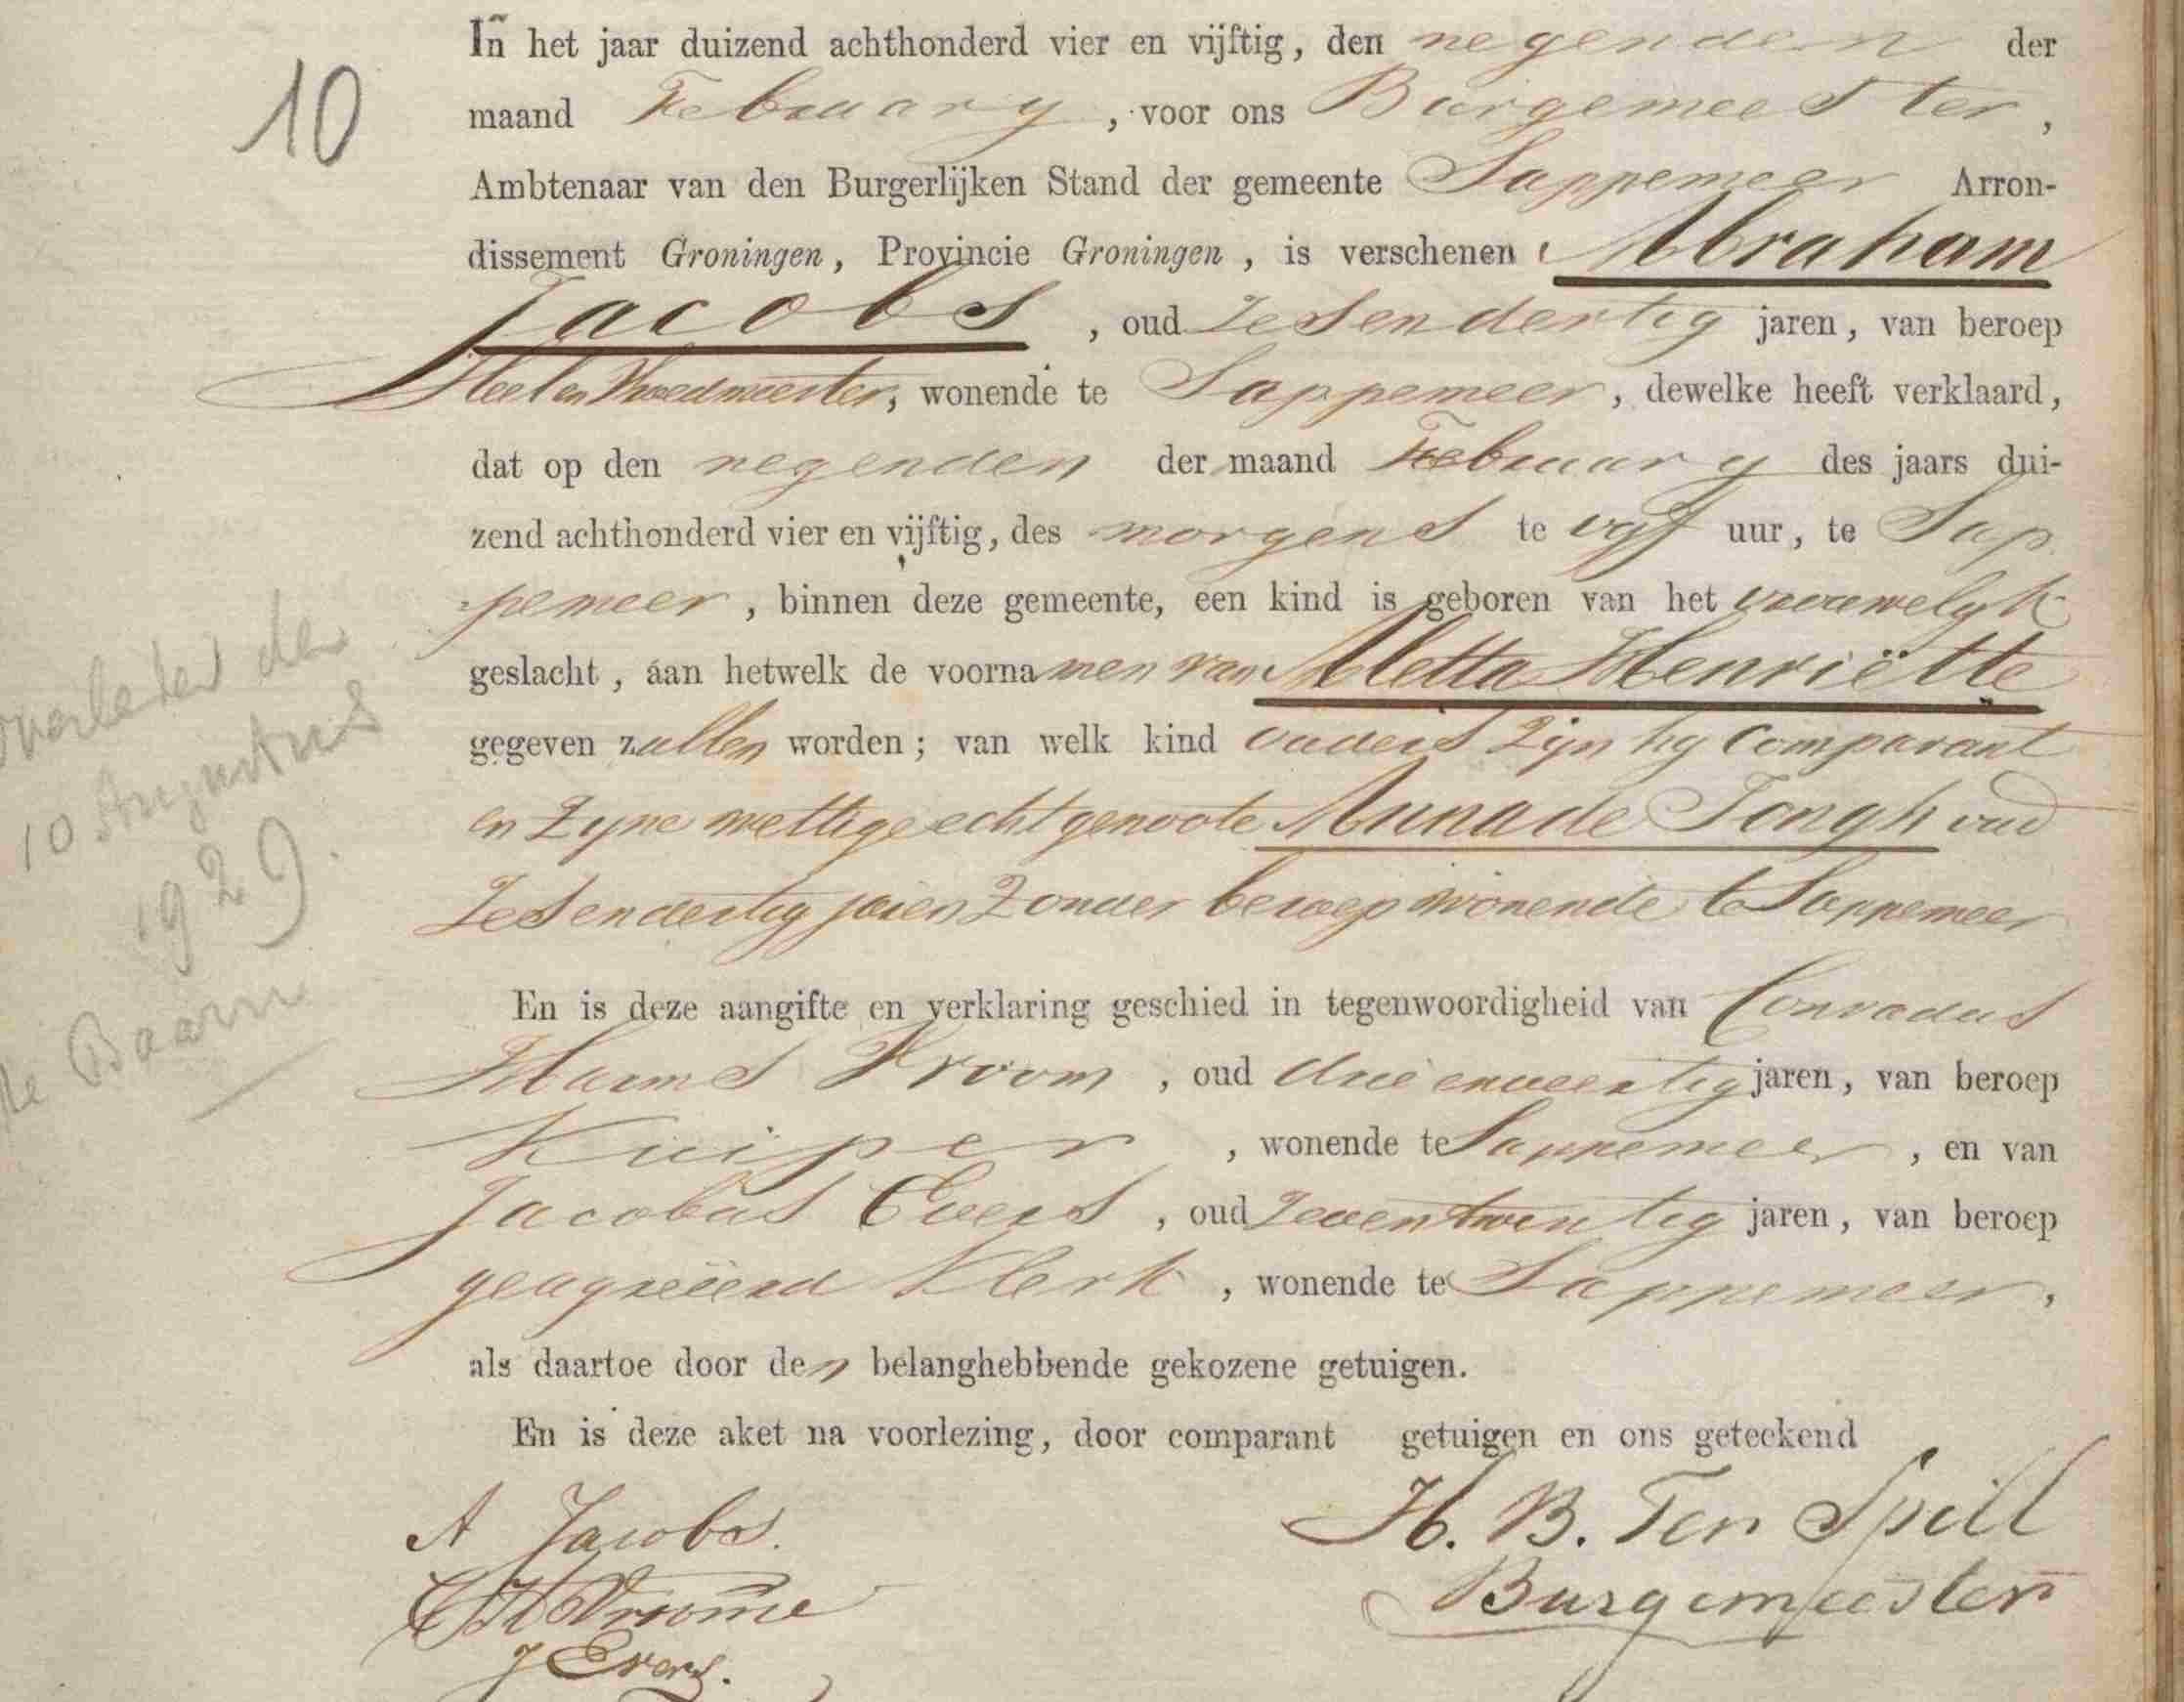 10
In het jaar duizend achthonderd vier en vijftig, den negenden der
maand February, voor ons Burgemeester,
Ambtenaar van den Burgerlijken Stand der gemeente Sappemeer Arron-
dissement Groningen, Provincie Groningen, is verschenen Abraham
Jacobs, oud Zesendertig jaren, van beroep
Heel en Vroedmeester, wonende te Sappemeer, dewelke heeft verklaard,
dat op den negenden der maand February des jaars dui-
zend achthonderd vier en vijftig, des morgens te vyf uur, te Sap
pemeer, binnen deze gemeente, een kind is geboren van het vrouwelyk
geslacht, aan hetwelk de voornamen van Aletta Henriëtte
gegeven zullen worden; van welk kind ouders zijn hy Comparant
en zyne wettige echtgenoote Anna de Jongh oud
Zesendertig jaren zonder beroep wonende te Sappemeer
En is deze aangifte en verklaring geschied in tegenwoordigheid van Conradus
Harms Vroom, oud drie en veertig jaren, van beroep
Kuiper, wonende te Sappemeer, en van
Jacobus Evers, oud Zeventwintig jaren, van beroep
geagreëerd Klerk, wonende te Sappemeer,
als daartoe door den belanghebbende gekozene getuigen.
En is deze aket na voorlezing, door comparant getuigen en ons geteekend
A Jacobs.
C H Vroome
J Evers.
H. B. Ten Spill
Burgemeester
overleden den
10 Augustus
1929.
te Baarn